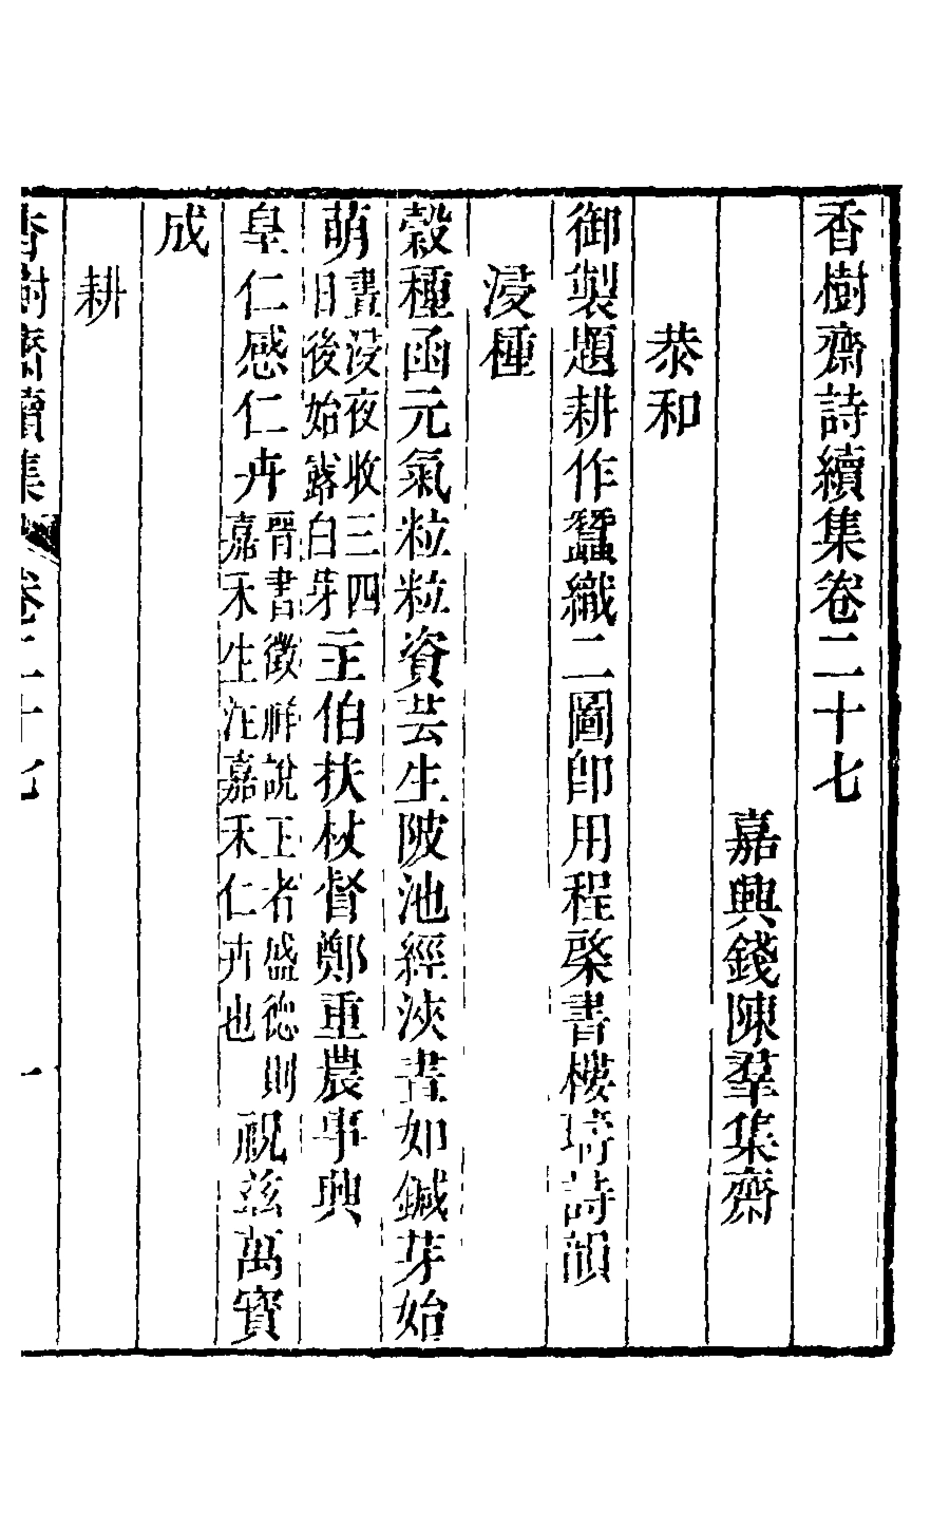 香樹齋詩續集卷二十七
嘉興錢陳羣集齋
恭和
御製題耕作蠶織二圖卽用程棨書樓璹詩韻
浸種
穀種函元氣粒粒資芸生陂池經浹晝如鍼芽始
萌晝浸夜收三四日後始露白芽主伯扶杖督鄭重農事興
皇仁感仁卉晉書徵祥說王者盛德則嘉禾生注嘉禾仁卉也祝兹萬寶
成
耕
香樹齋續集 卷二十七 一